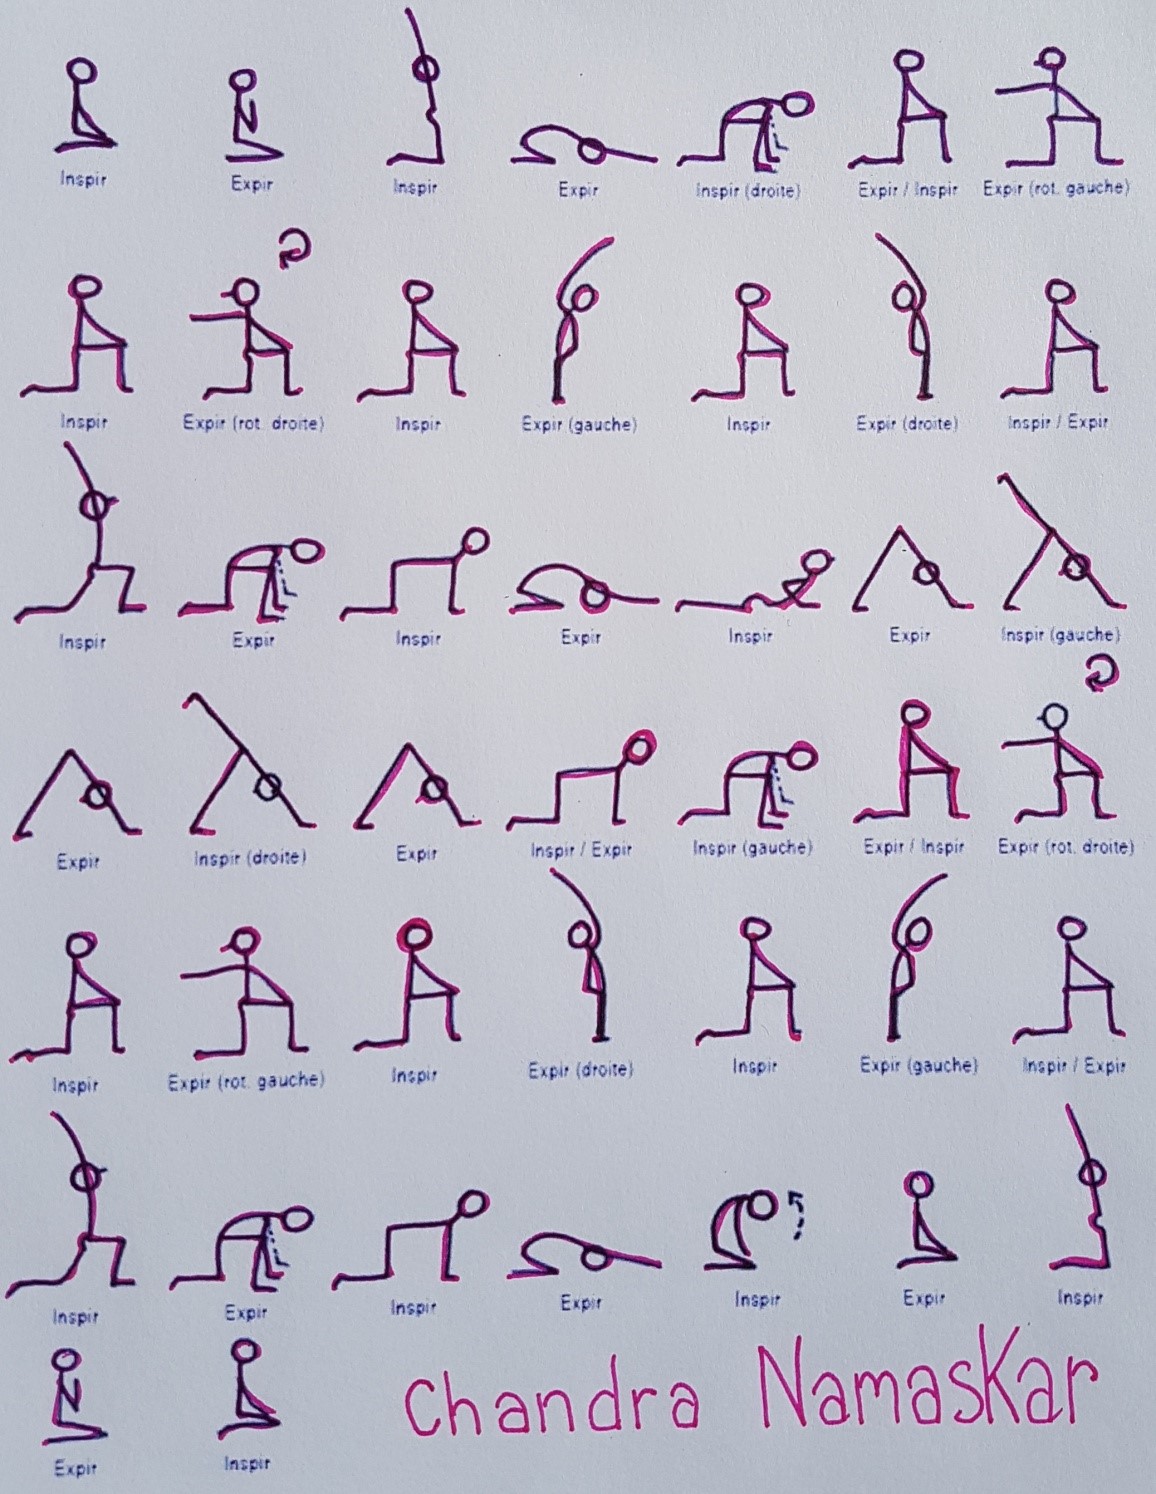 Inspir
Expir
Inspir
Expir
Inspir (droite)
Expir / Inspir
Expir (rot. gauche)
Inspir
Expir (rot. droite)
Inspir
Expir (gauche)
Inspir
Expir (droite)
Inspir / Expir
Inspir
Expir
Inspir
Expir
Inspir
Expir
Inspir (gauche)
Expir
Inspir (droite)
Expir
Inspir / Expir
Inspir (gauche)
Expir / Inspir
Expir (rot. droite)
Inspir
Expir (rot. gauche)
Inspir
Expir (droite)
Inspir
Expir (gauche)
Inspir / Expir
Inspir
Expir
Inspir
Expir
Inspir
Expir
Inspir
Expir
Inspir
Chandra Namaskar